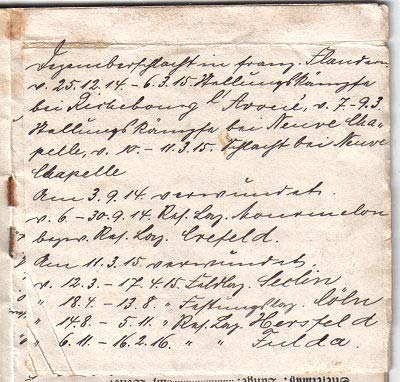 Dezemberschlacht in franz. Flandern
v. 25.12.14. - 6.3.15. Stellungskämpfe
bei Richebourg l'Avoué, v. 7-9.3.
Stellungskämpfe bei Neuve Cha-
pelle, v. 10. - 11.3.15. Schlacht bei Neuve
Chapelle
Am 3.9.14. verwundet.
v. 6 - 30.9.14. Res. Laz. Mourmelon
bezw. Res. Laz. Crefeld.
Am 11.3.15 verwundet,
v. 12.3. - 17.4.15. Feldlaz. Seclin
" 18.4. - 13.8. " Festungslaz. Cöln
" 14.8. - 5.11. " Res. Laz. Hersfeld
" 6.11. - 16.2.16. " " Fulda.